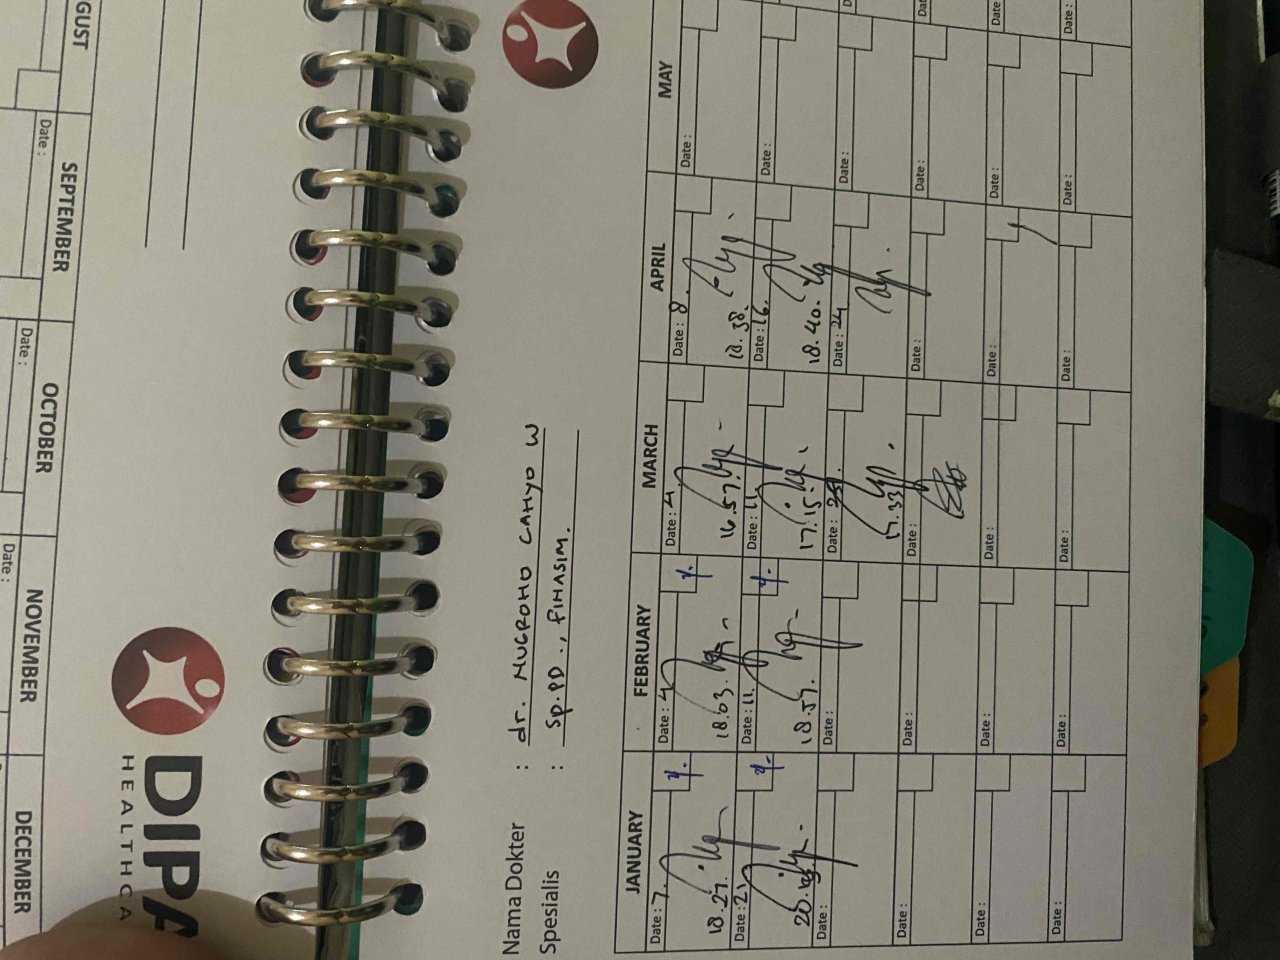 DIPA
HEALTHCA
GUST
SEPTEMBER
OCTOBER
NOVEMBER
DECEMBER
Date :
Date :
Date :
Nama Dokter : dr. NUGROHO CAHYO W
Spesialis : Sp.PD., FINASIM.
JANUARY FEBRUARY MARCH APRIL MAY
Date : 7. Date : 4 Date : 4 Date : 8. Date :
18.27. 18.03. 16.57. 18.38.
Date : 21 Date : 11. Date : 11. Date : 16. Date : Date :
20. 18.57. 17.15. 18.40.
Date : Date : Date : Date : 24 Date : D
17.33
Date : Date : Date : Date : Date : Dat
Date : Date : Date : Date : Date : Date
Date : Date : Date : Date : Date : Date :